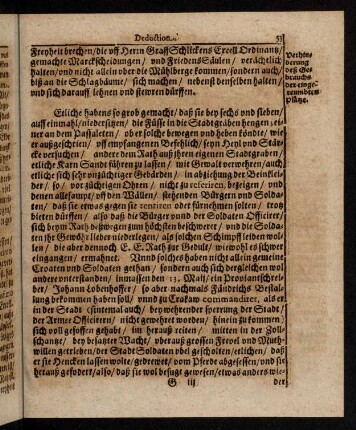 Deduction. 53
Freyheit brechen/ die vff Herrn Graff Schlickens Excell Ordinantz/
gemachte Marckscheidungen/ vnd Friedens Säulen/ verächtlich
halten/ vnd nicht allein vber die Mühlberge kommen/ sondern auch/
biß an die Schlagbäume/ sich machen/ nebenst denselben halten/
vnd sich darauff lehnen vnd stewren dürffen.
Verhin-
derung
deß Ge-
brauchs
der einge-
reumbten
plätze.
Etliche habens so grob gemacht/ daß sie bey sechs vnd sieben/
auff einmahl/ an/ niedersitzen/ die Füsse in die Stadtgraben hengen/ ei-
ner an dem Passaleten/ aber solche bewegen vnd heben köndte/ wie-
er außgeschrien/ off empfangenen Befehlich/ seyn Heyl vnd Stärc-
ke versuchen/ andere dem Rath auß ihren eigenen Stadtgraben/
etliche Karn Sandt führen zu lassen/ mit Gewalt verwehren/ auch/
etliche sich sehr vnzüchtiger Gebärden/ in abziehung der Beinklei-
der/ so/ vor züchtigen Ohren/ nicht zu referiren, bezeigen/ vnd
denen allesampt/ off den Wällen/ stehenden Bürgern vnd Solda-
ten/ daß sie etwas gegen sie tentiren oder fürnehmen solten/ trotz
bieten dürffen/ also daß die Bürger vnnd der Soldaten Officirer/
sich beym Rath deßwegen zum höchsten beschweret/ vnd die Solda-
ten ihr Gewöhr lieber niederlegen/ als solchen Schimpff leiden wol-
len/ die aber dennoch E. E. Rath zur Gedult/ wiewohl es schwer
eingangen/ ermahnet. Vnnd solches haben nicht allein gemeine
Croaten vnd Soldaten gethan/ sondern auch sich dergleichen wol
andere vnterstanden/ inmassen den 13. Maij/ ein Proviantschrei-
ber/ Johann Loberhoffer/ so aber nachmals Fändrichs Bestal-
lung bekommen haben soll/ vnnd zu Crakaw commandiret, als er
in der Stadt (sintemal auch/ bey wehrender sperrung der Stadt/
der Armee Officirern/ nicht gewehret worden/ hinein zu kommen)
sich voll gesoffen gehabt/ im herauß reiten/ mitten in der Zoll-
schantze/ bey besatzter Wacht/ vberauß grossen Frevel vnd Muth-
willen getrieben/ der Stadt Soldaten vbel gescholten/ etlichen/ daß
er sie Hencken lassen wolte/ gedrewet/ vom Pferde abgesessen/ vnd sie
herauß gefodert/ also/ daß sie wol befugt gewesen/ etwas anders wie-
G iij der